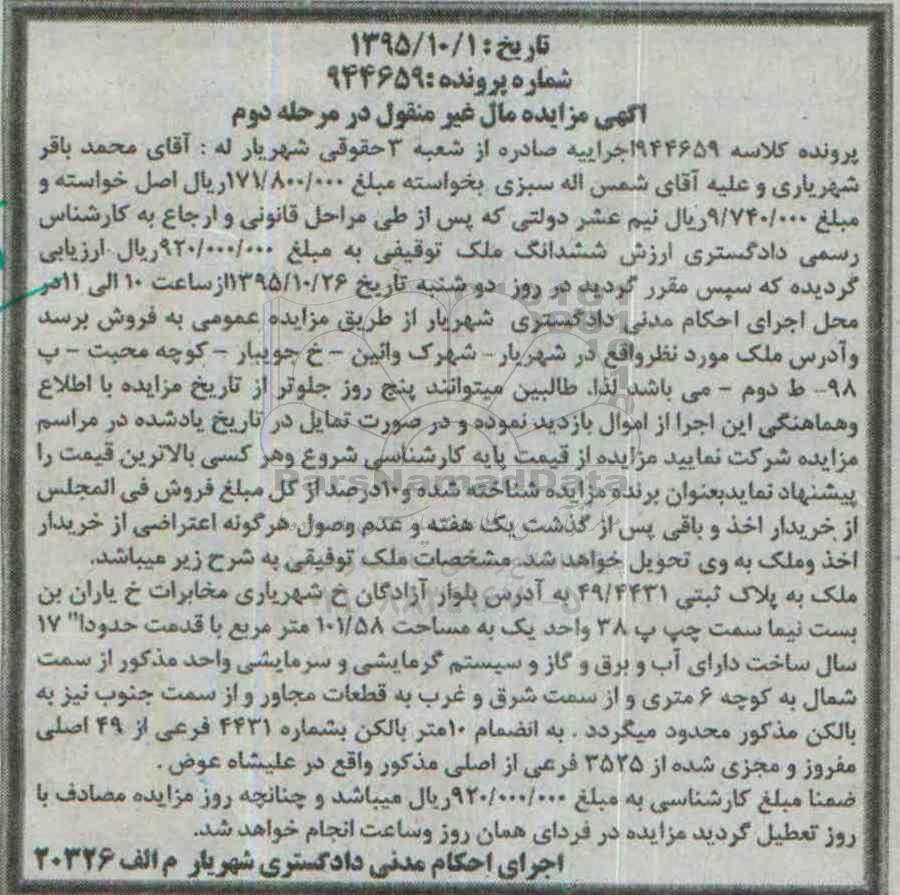 تاریخ: ۱۳۹۵/۱۰/۱
شماره پرونده: ۹۴۴۶۵۹
آگهی مزایده مال غیر منقول در مرحله دوم
پرونده کلاسه ۹۴۴۶۵۹اجراییه صادره از شعبه ۳حقوقی شهریار له : آقای محمد باقر
شهریاری و علیه آقای شمس اله سبزی بخواسته مبلغ ۱۷۱/۸۰۰/۰۰۰ریال اصل خواسته و
مبلغ ۹/۷۴۰/۰۰۰ریال نیم عشر دولتی که پس از طی مراحل قانونی و ارجاع به کارشناس
رسمی دادگستری ارزش ششدانگ ملک توقیفی به مبلغ ۹۲۰/۰۰۰/۰۰۰ریال ارزیابی
گردیده که سپس مقرر گردید در روز دو شنبه تاریخ ۱۳۹۵/۱۰/۲۶ازساعت ۱۰ الی ۱۱در
محل اجرای احکام مدنی دادگستری شهریار از طریق مزایده عمومی به فروش برسد
وآدرس ملک مورد نظرواقع در شهریار – شهرک وائین – خ جویبار – کوچه محبت – پ
۹۸– ط دوم – می باشد لذا، طالبین میتوانند پنج روز جلوتر از تاریخ مزایده با اطلاع
وهماهنگی این اجرا از اموال بازدید نموده و در صورت تمایل در تاریخ یادشده در مراسم
مزایده شرکت نمایید مزایده از قیمت پایه کارشناسی شروع وهر کسی بالاترین قیمت را
پیشنهاد نمایدبعنوان برنده مزایده شناخته شده و۱۰درصد از کل مبلغ فروش فی المجلس
از خریدار اخذ و باقی پس از گذشت یک هفته و عدم وصول هرگونه اعتراضی از خریدار
اخذ وملک به وی تحویل خواهد شد. مشخصات ملک توقیفی به شرح زیر میباشد.
ملک به پلاک ثبتی ۴۹/۴۴۳۱ به آدرس بلوار آزادگان خ شهریاری مخابرات خ یاران بن
بست نیما سمت چپ پ ۳۸ واحد یک به مساحت ۱۰۱/۵۸ متر مربع با قدمت حدودا" ۱۷
سال ساخت دارای آب و برق و گاز و سیستم گرمایشی و سرمایشی واحد مذکور از سمت
شمال به کوچه ۶ متری و از سمت شرق و غرب به قطعات مجاور و از سمت جنوب نیز به
بالکن مذکور محدود میگردد . به انضمام ۱۰متر بالکن بشماره ۴۴۳۱ فرعی از ۴۹ اصلی
مفروز و مجزی شده از ۳۵۲۵ فرعی از اصلی مذکور واقع در علیشاه عوض .
ضمنا مبلغ کارشناسی به مبلغ ۹۲۰/۰۰۰/۰۰۰ریال میباشد و چنانچه روز مزایده مصادف با
روز تعطیل گردید مزایده در فردای همان روز وساعت انجام خواهد شد.
اجرای احکام مدنی دادگستری شهریار م الف ۲۰۳۲۶
ParsNamadData